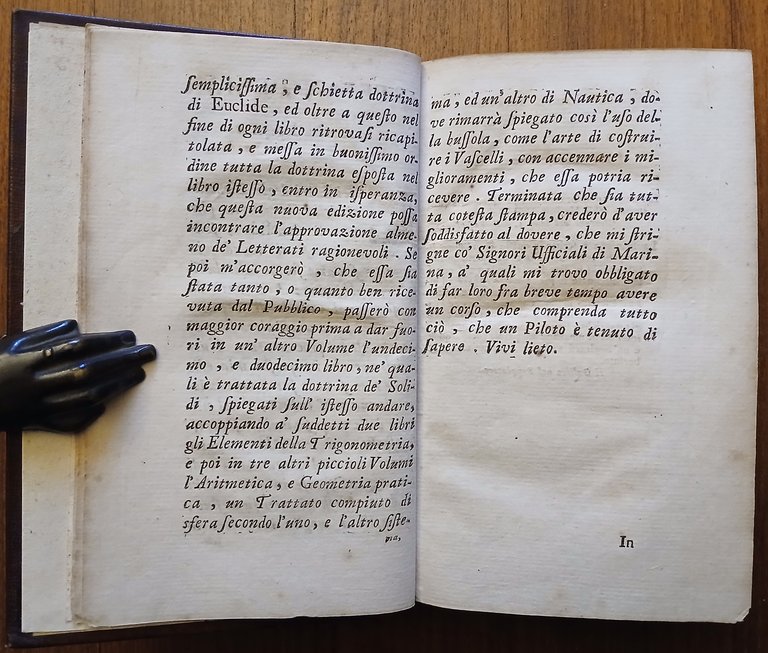 ſempliciſſima, e ſchietta dottrina
di Euclide, ed oltre a queſto nel
fine di ogni libro ritrovaſi ricapi-
tolata, e meſſa in buoniſſimo or-
dine tutta la dottrina eſpoſta nel
libro iſteſſo, entro in iſperanza,
che queſta nuova edizione poſſa
incontrare l'approvazione alme-
no de' Letterati ragionevoli. Se
poi m'accorgerò, che eſſa ſia
ſtata tanto, o quanto ben rice-
vuta dal Pubblico, paſſerò con
maggior coraggio prima a dar fuo-
ri in un' altro Volume l'undeci-
mo, e duodecimo libro, ne' qua-
li è trattata la dottrina de' Soli-
di, ſpiegati ſull' iſteſſo andare,
accoppiando a' ſuddetti due libri
gli Elementi della Trigonometria,
e poi in tre altri piccioli Volumi
l'Aritmetica, e Geometria prati-
ca, un Trattato compiuto di
sfera ſecondo l'uno, e l'altro ſiſte-
ma,
ma, ed un'altro di Nautica, do-
ve rimarrà ſpiegato così l'uſo del-
la buſſola, come l'arte di coſtrui-
re i Vaſcelli, con accennare i mi-
glioramenti, che eſſa potria ri-
cevere. Terminata che ſia tut-
ta coteſta ſtampa, crederò d'aver
ſoddisfatto al dovere, che mi ſtri-
gne co' Signori Ufficiali di Mari-
na, a' quali mi trovo obbligato
di far loro fra breve tempo avere
un corſo, che comprenda tutto
ciò, che un Piloto è tenuto di
ſapere. Vivi lieto.
In